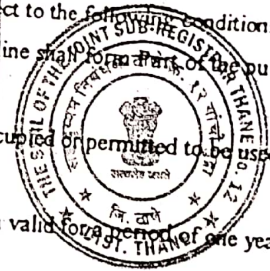 ect to the following condition
line shall form Part of the pu
cupied or permitted to be use
valid for a period of one yea
THE SEAL OF THE JOINT SUB-REGISTRAR THANE NO. 12
सह दुय्यम निबंधक वर्ग
१२ यांची
सत्यमेव जयते
जि. ठाणे
DIST. THANE